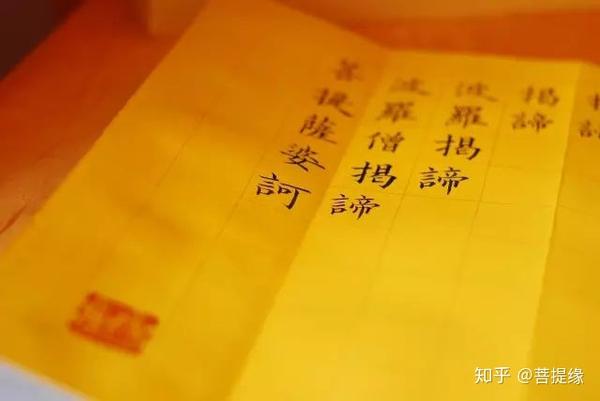 揭諦
揭諦
波羅揭諦
波羅僧揭諦
菩提薩婆訶
知乎 @菩提缘